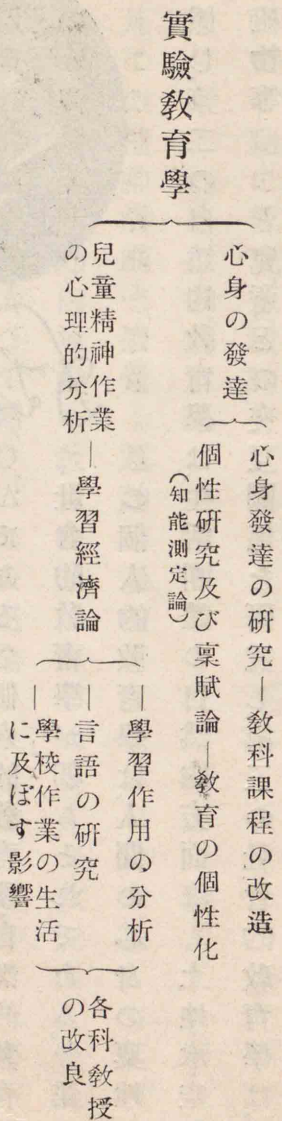 實驗敎育學
心身の發達
心身發達の硏究―敎科課程の改造
個性硏究及び稟賦論―敎育の個性化
(知能測定論)
兒童精神作業
の心理的分析
―學習經濟論
―學習作用の分析
―言語の硏究
―學校作業の生活
に及ぼす影響
各科敎授
の改良